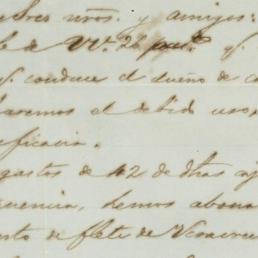 sres nros. y amigos:
de Vs. 26 pdo. q.
q. conduce el dueño de c
haremos el debido uso
eficacia.
gastos de 12 de dhas
cuencia, hemos abona
to de flete de Veracru